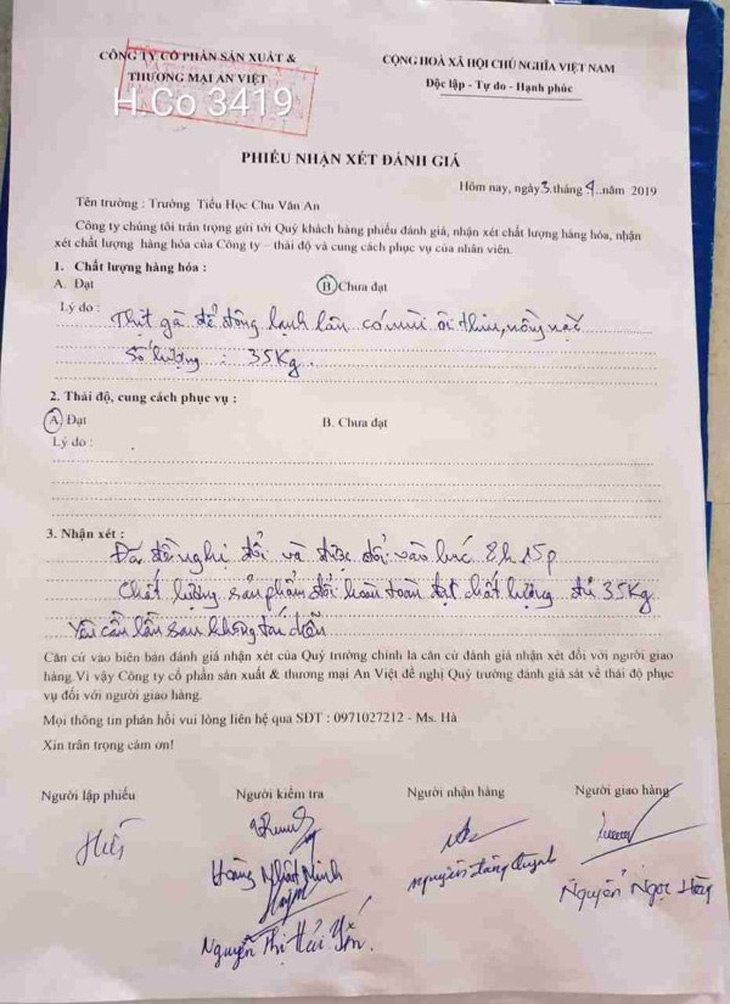 CÔNG TY CỔ PHẦN SẢN XUẤT &
THƯƠNG MẠI AN VIỆT
H.Co 3419
CỘNG HOÀ XÃ HỘI CHỦ NGHĨA VIỆT NAM
Độc lập - Tự do - Hạnh phúc
PHIẾU NHẬN XÉT ĐÁNH GIÁ
Hôm nay, ngày 3 tháng 4 năm 2019
Tên trường : Trường Tiểu Học Chu Văn An
Công ty chúng tôi trân trọng gửi tới Quý khách hàng phiếu đánh giá, nhận xét chất lượng hàng hóa, nhận
xét chất lượng hàng hóa của Công ty – thái độ và cung cách phục vụ của nhân viên.
1. Chất lượng hàng hóa :
A. Đạt
B. Chưa đạt
Lý do : Thịt gà để đông lạnh lâu có mùi ôi thiu, nồng nặc
Số lượng : 35Kg.
2. Thái độ, cung cách phục vụ :
A. Đạt
B. Chưa đạt
Lý do :
3. Nhận xét :
Đã đề nghị đổi và được đổi vào lúc 8h15p
Chất lượng sản phẩm đổi hoàn toàn đạt chất lượng đủ 35Kg
Yêu cầu lần sau không tái diễn
Căn cứ vào biên bản đánh giá nhận xét của Quý trường chính là căn cứ đánh giá nhận xét đối với người giao
hàng.Vì vậy Công ty cổ phần sản xuất & thương mại An Việt đề nghị Quý trường đánh giá sát về thái độ phục
vụ đối với người giao hàng.
Mọi thông tin phản hồi vui lòng liên hệ qua SĐT : 0971027212 - Ms. Hà
Xin trân trọng cảm ơn!
Người lập phiếu
Người kiểm tra
Người nhận hàng
Người giao hàng
Hoàng Nhật Minh
Nguyễn Thị Hải Yến.
Nguyễn Đăng Quỳnh
Nguyễn Ngọc